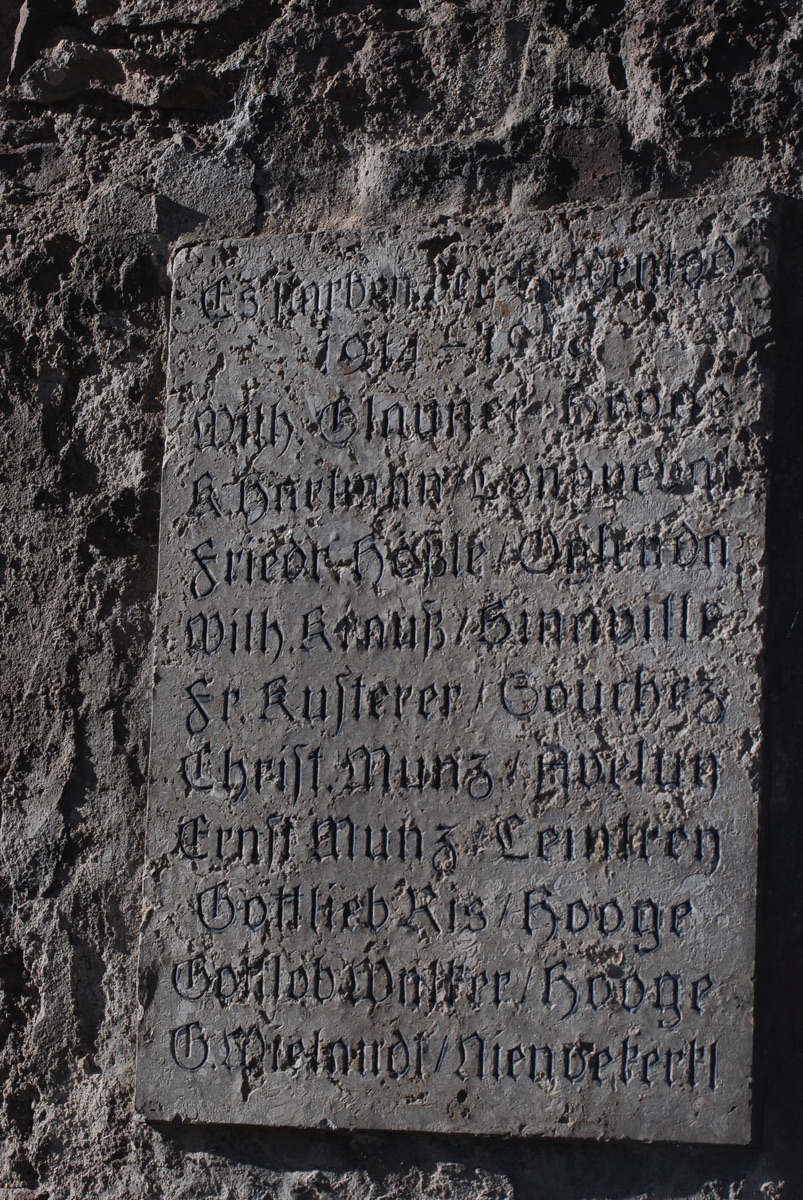 Es starben den Heldentod
1914 - 1918
Wilh. Glauner / Hooge
K. Hartmann / Longueval
Friedr. Hößle /
Wilh. Krauß / Ginnville
Fr. Kusterer / Souchez
Christ. Munz / Aveluy
Ernst Munz / Leintrey
Gottlieb Ris / Hooge
Gottlob Walker / Hooge
G. Wielandt / Nienvekerkl